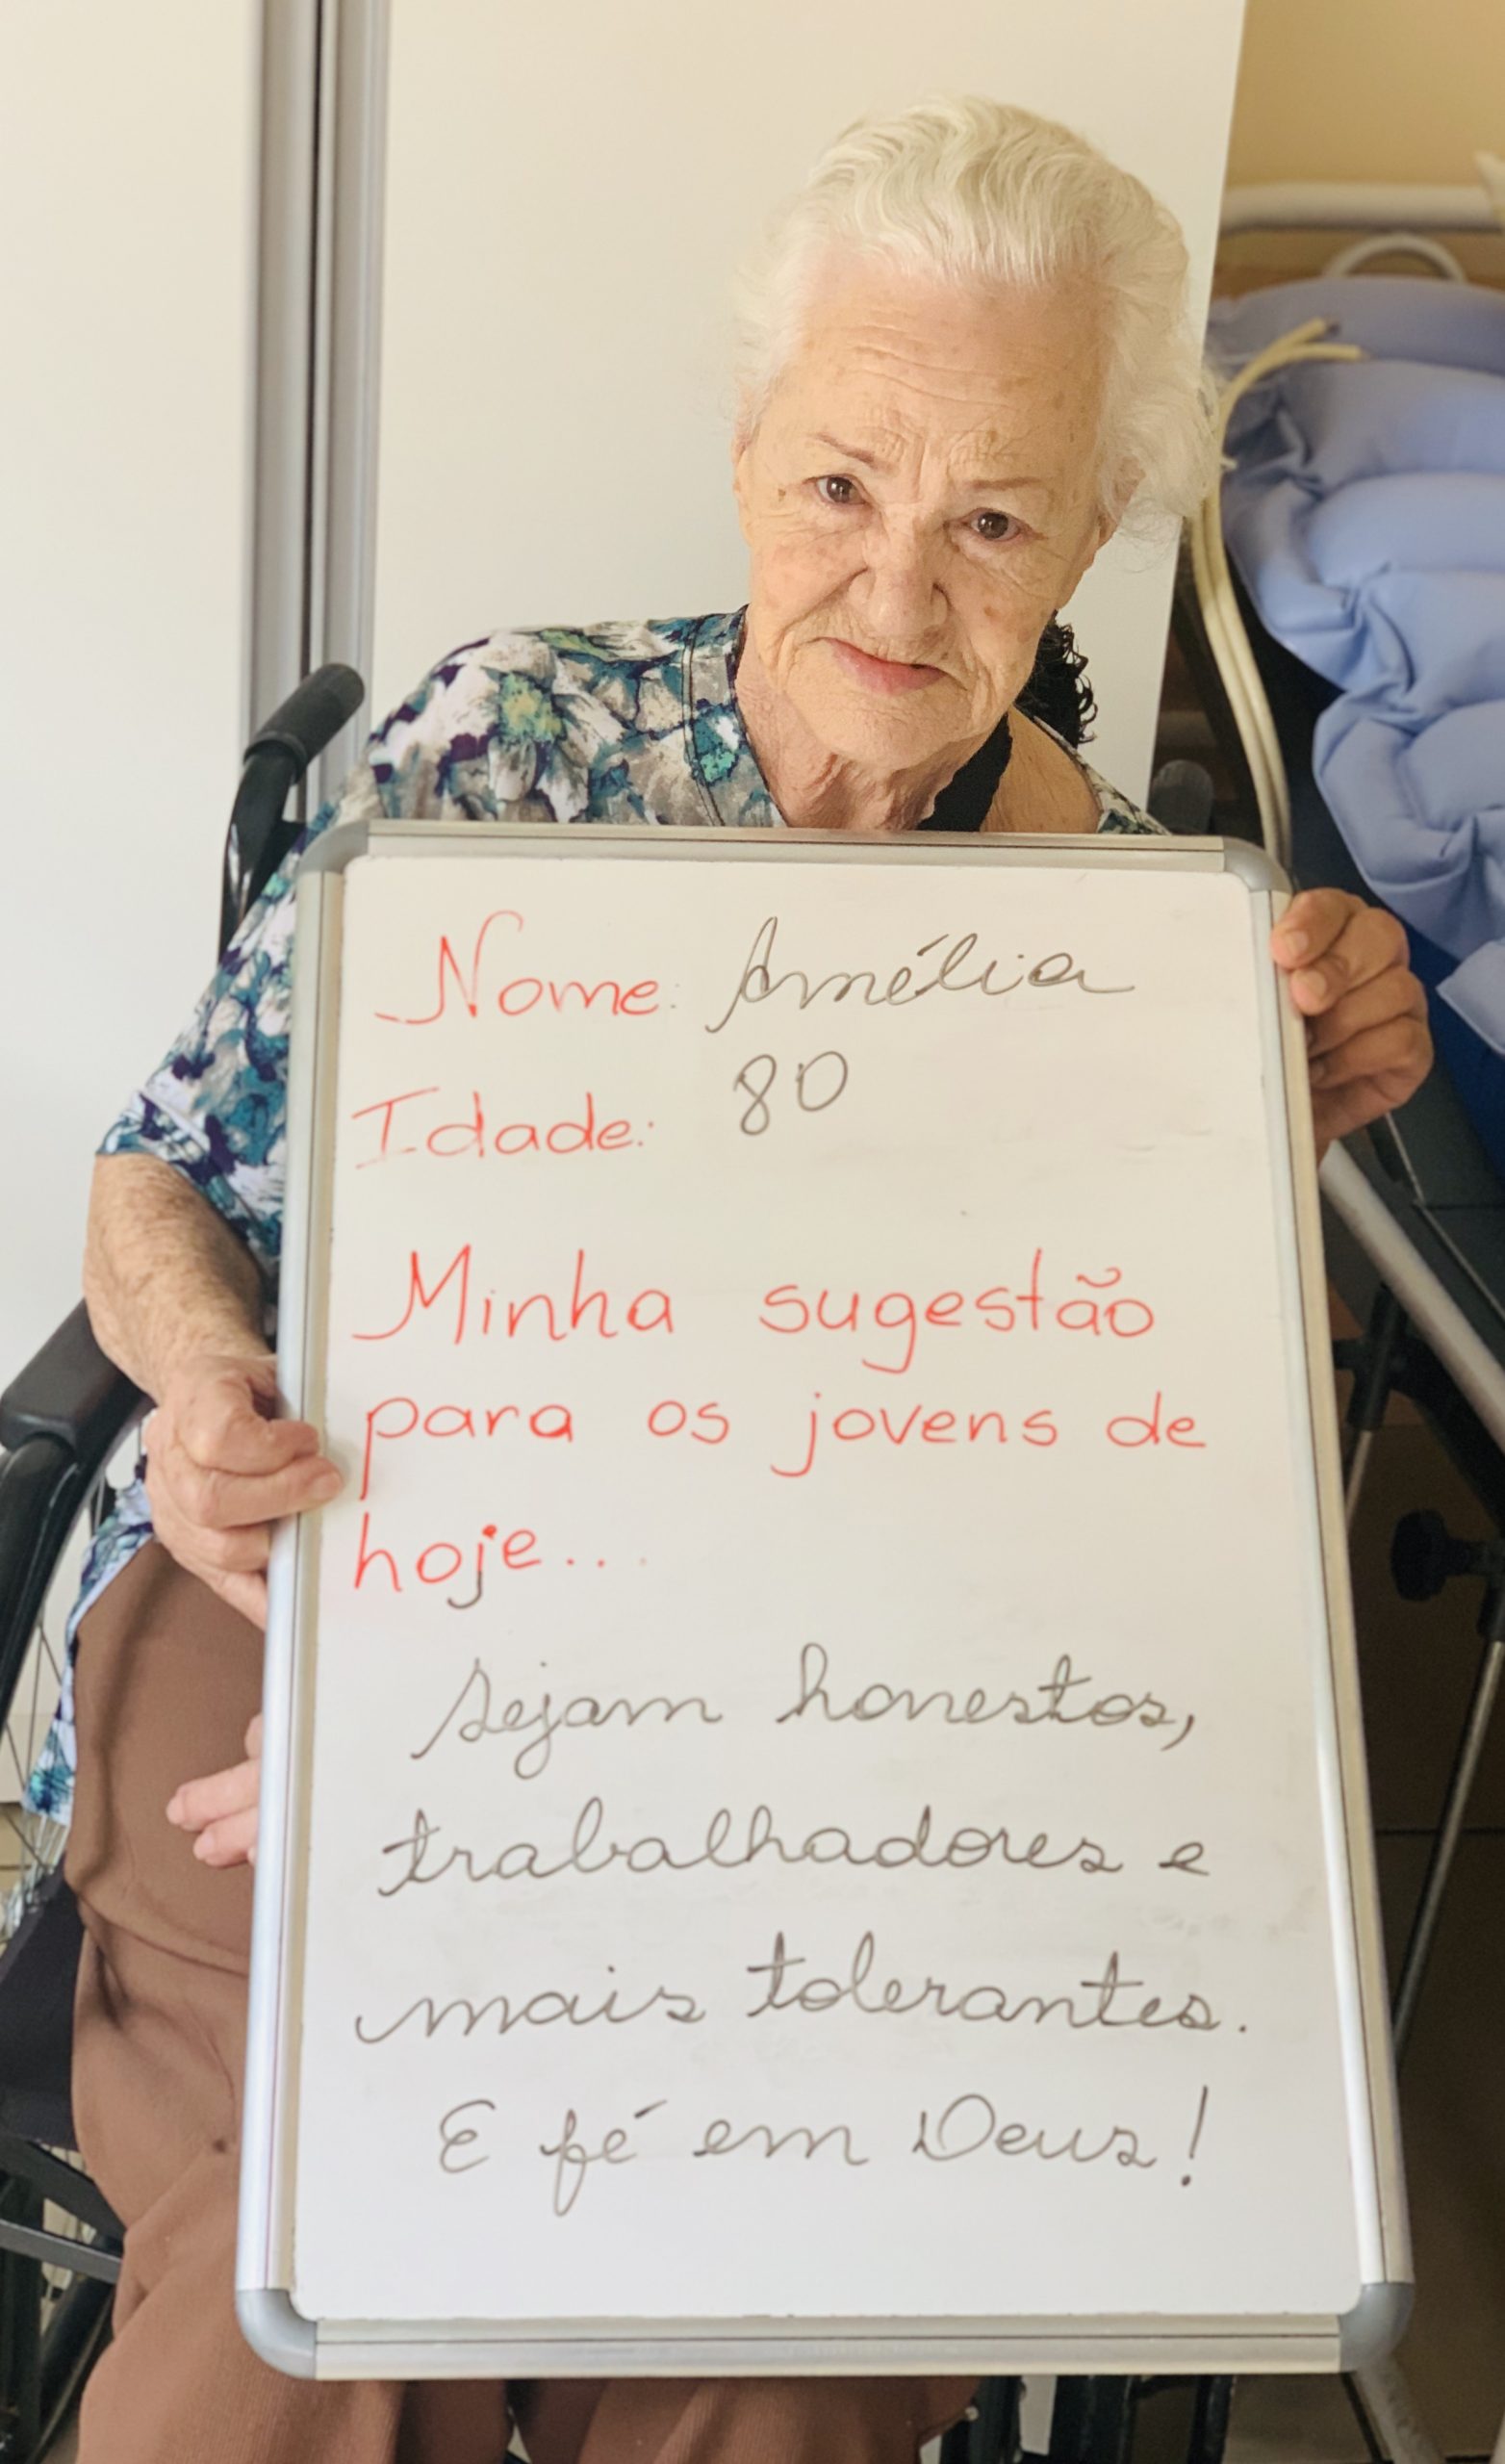 Nome: Amélia
Idade: 80
Minha sugestão
para os jovens de
hoje...
sejam honestos,
trabalhadores e
mais tolerantes.
E fé em Deus!